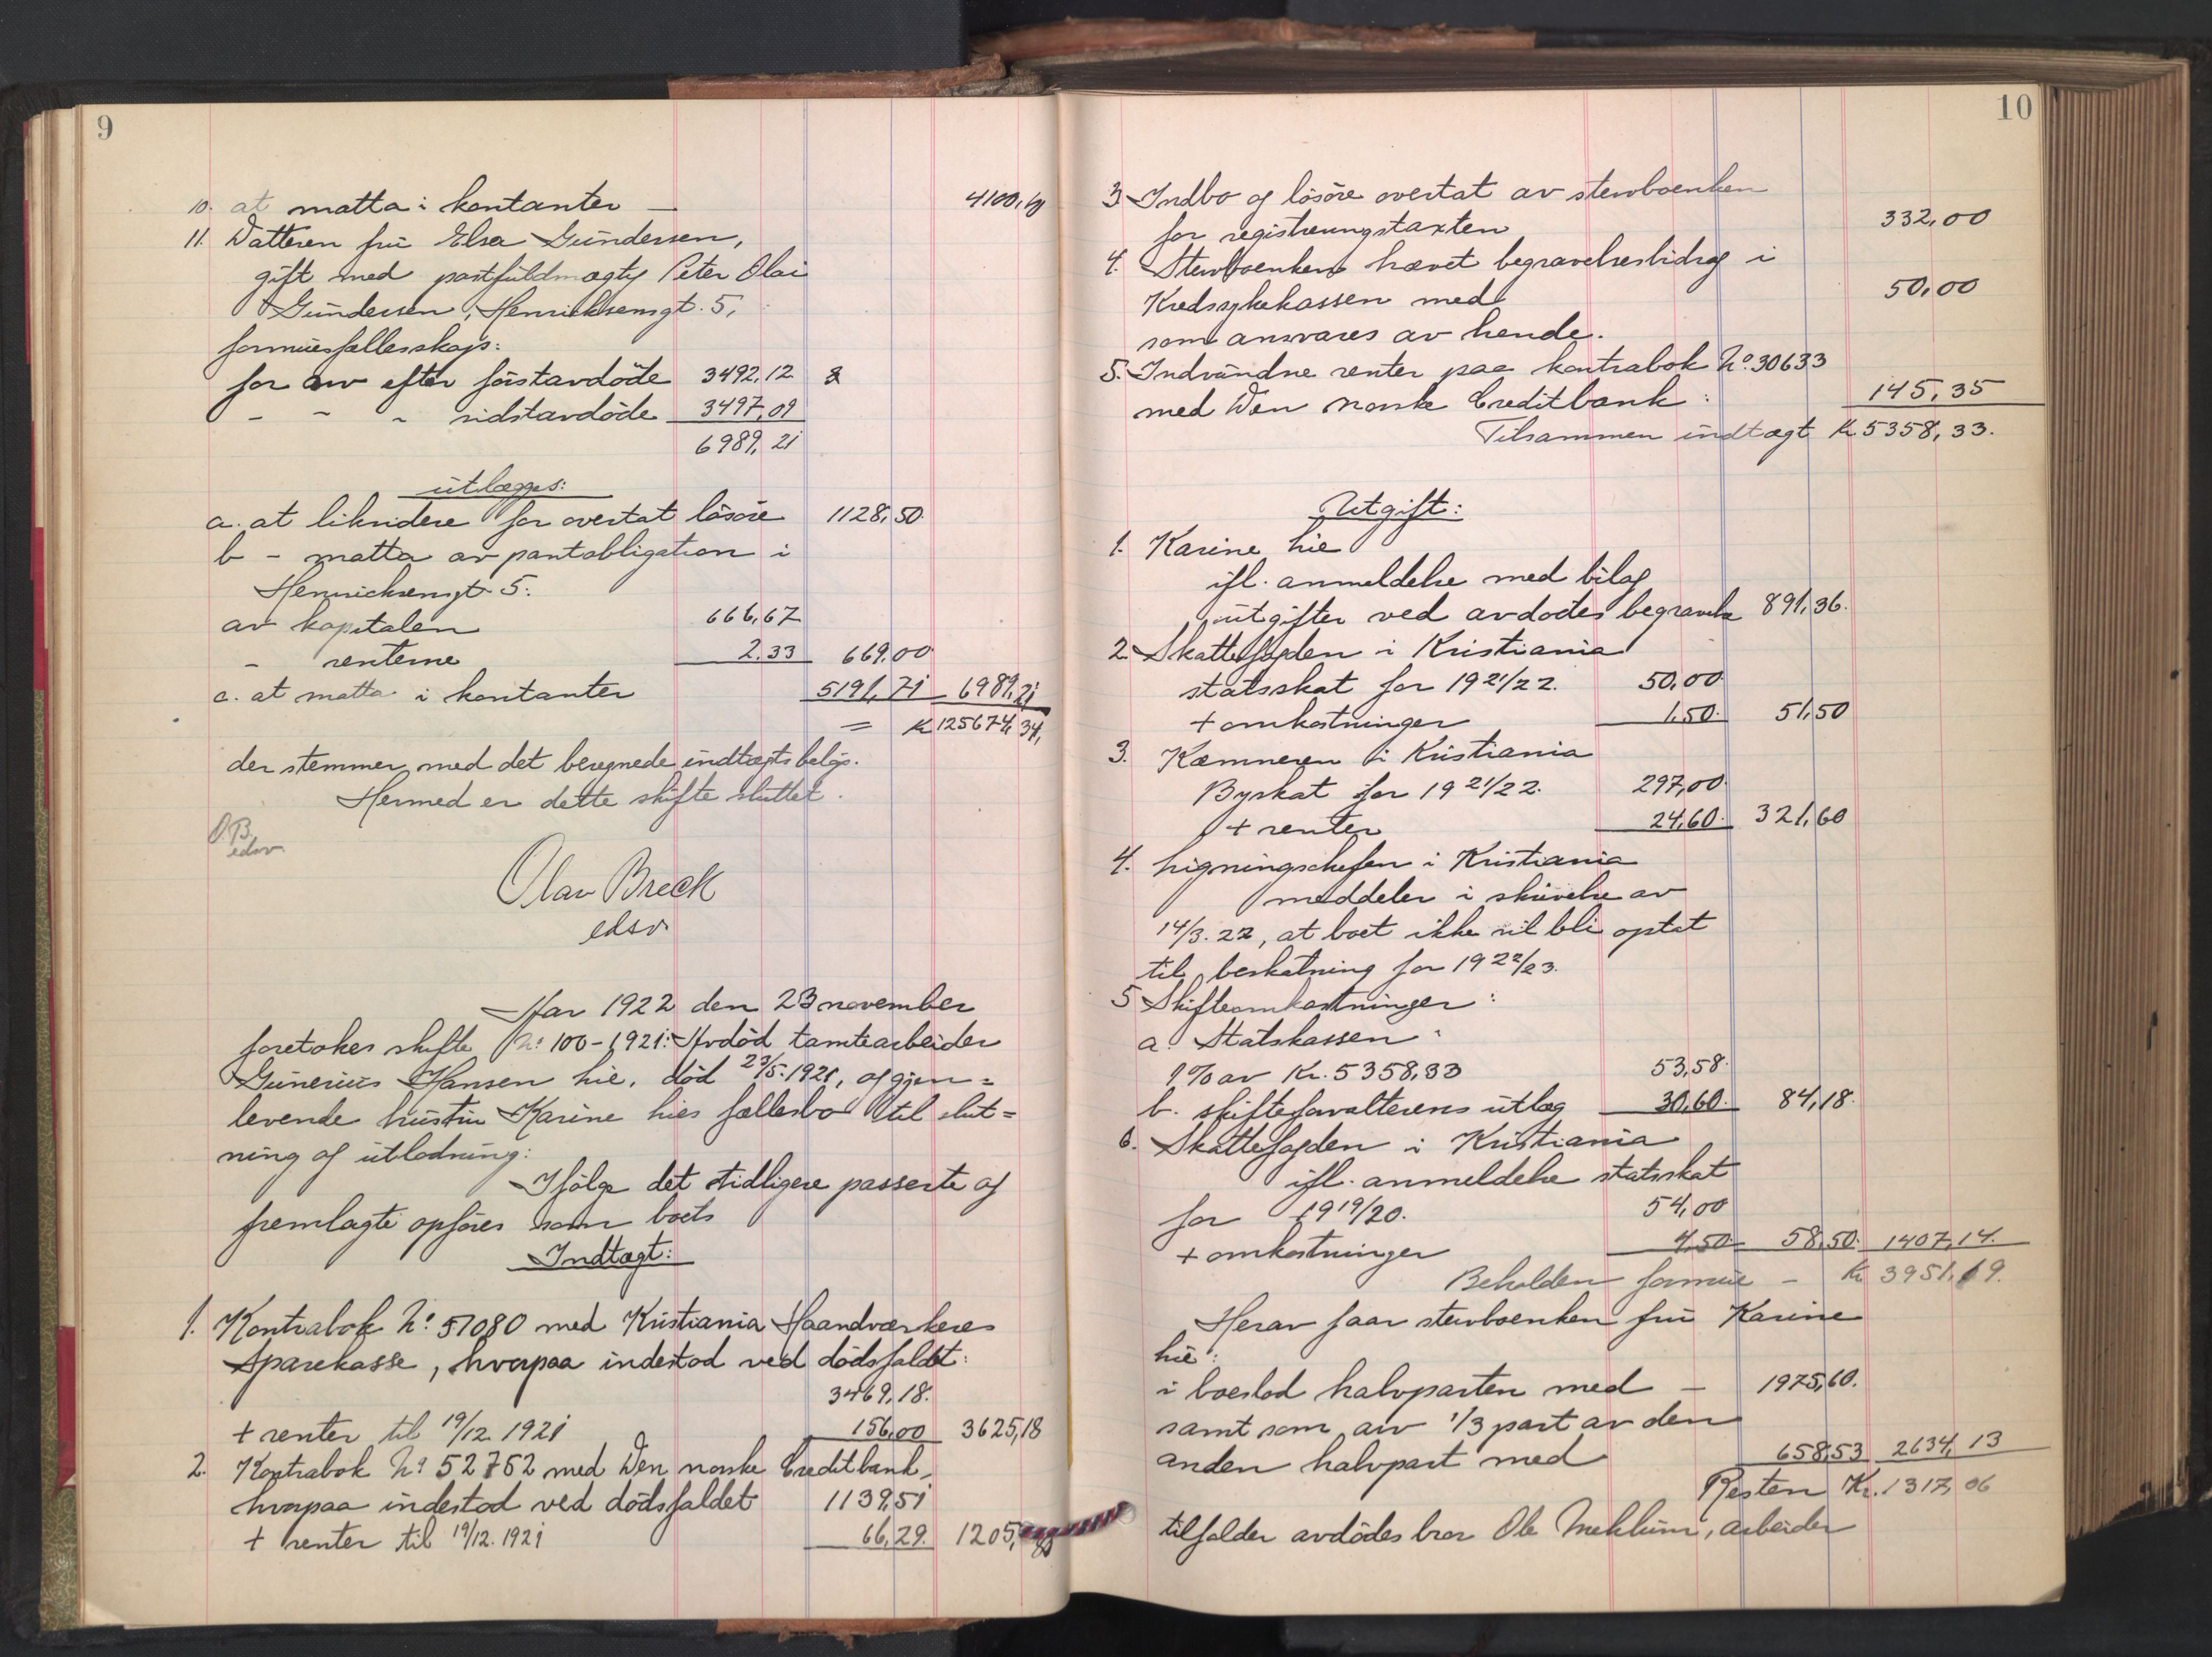 9
10. at motta i kontanter — 4100,69
11. Datteren fru Elsa Gundersen,
gift med postfuldmægtig Peter Olai
Gundersen, Henrichsensgt. 5,
formuesfællesskap:
for arv efter førstavdøde 3492,12
- - - sidstavdøde 3497,09
6989,21
utlægges:
a. at likvidere for overtat løsøre 1128,50
b - motta av pantobligation i
Henrichsensgt 5:
av kapitalen 666,67
- renterne 2.33 669,00
c. at motta i kontanter 5191,71 6989,21
= Kr 125674,34,
der stemmer med det beregnede indtægtsbeløp.
Hermed er dette skifte sluttet.
O.B.
edsv.
Olav Breck
edsv.
Aar 1922 den 23 november
foretokes skifte No 100-1921: Avdød tomtearbeider
Gunerius Hansen Lie, død 23/5.1921, og gjen=
levende hustru Karine Lies fællesbo til slut=
ning og utlodning:
Ifølge det tidligere passerte og
fremlagte opføres som boets
Indtægt:
1. Kontrabok No 57080 med Kristiania Haandværkeres
Sparekasse, hvorpaa indestod ved dødsfaldet:
3469,18.
+ renter til 19/12 1921 156,00 3625,18
2. Kontrabok No 52752 med Den norske Creditbank,
hvorpaa indestod ved dødsfaldet 1139,51
+ renter til 19/12.1921 66,29. 1205,80
10
3 Indbo og løsøre overtat av stervboenken
for registreringstaxten 332,00
4. Stervboenken hævet begravelsesbidrag i
Kredssykekassen med 50,00
som ansvares av hende.
5. Indvundne renter paa kontrabok No. 30633
med Den norske Creditbank: 145,35
Tilsammen indtægt Kr. 5358,33.
Utgift:
1. Karine Lie
ifl. anmeldelse med bilag
utgifter ved avdødes begravelse 891,36.
2. Skattefogden i Kristiania
statsskat for 1921/22. 50,00
+ omkostninger 1,50. 51,50
3. Kæmneren i Kristiania
Byskat for 1921/22. 297,00.
+ renter 24,60. 321,60
4. Ligningschefen i Kristiania
meddeler i skrivelse av
14/3.22, at boet ikke vil bli optat
til beskatning for 1922/23.
5 Skifteomkostninger:
a. Statskassen:
1% av Kr. 5358,33 53,58.
b. skifteforvalterens utlæg 30,60. 84,18.
6. Skattefogden i Kristiania
ifl. anmeldelse statsskat
for 1919/20. 54,00
+ omkostninger 4,50 58,50. 1407,14.
Beholden formue - Kr 3951,19.
Herav faar stervboenken fru Karine
Lie:
i boeslod halvparten med — 1975,60.
samt som arv 1/3 part av den
anden halvpart med 658,53 2634,13
Resten Kr. 1317,06
tilfalder avdødes bror Ole Meklum, arbeider